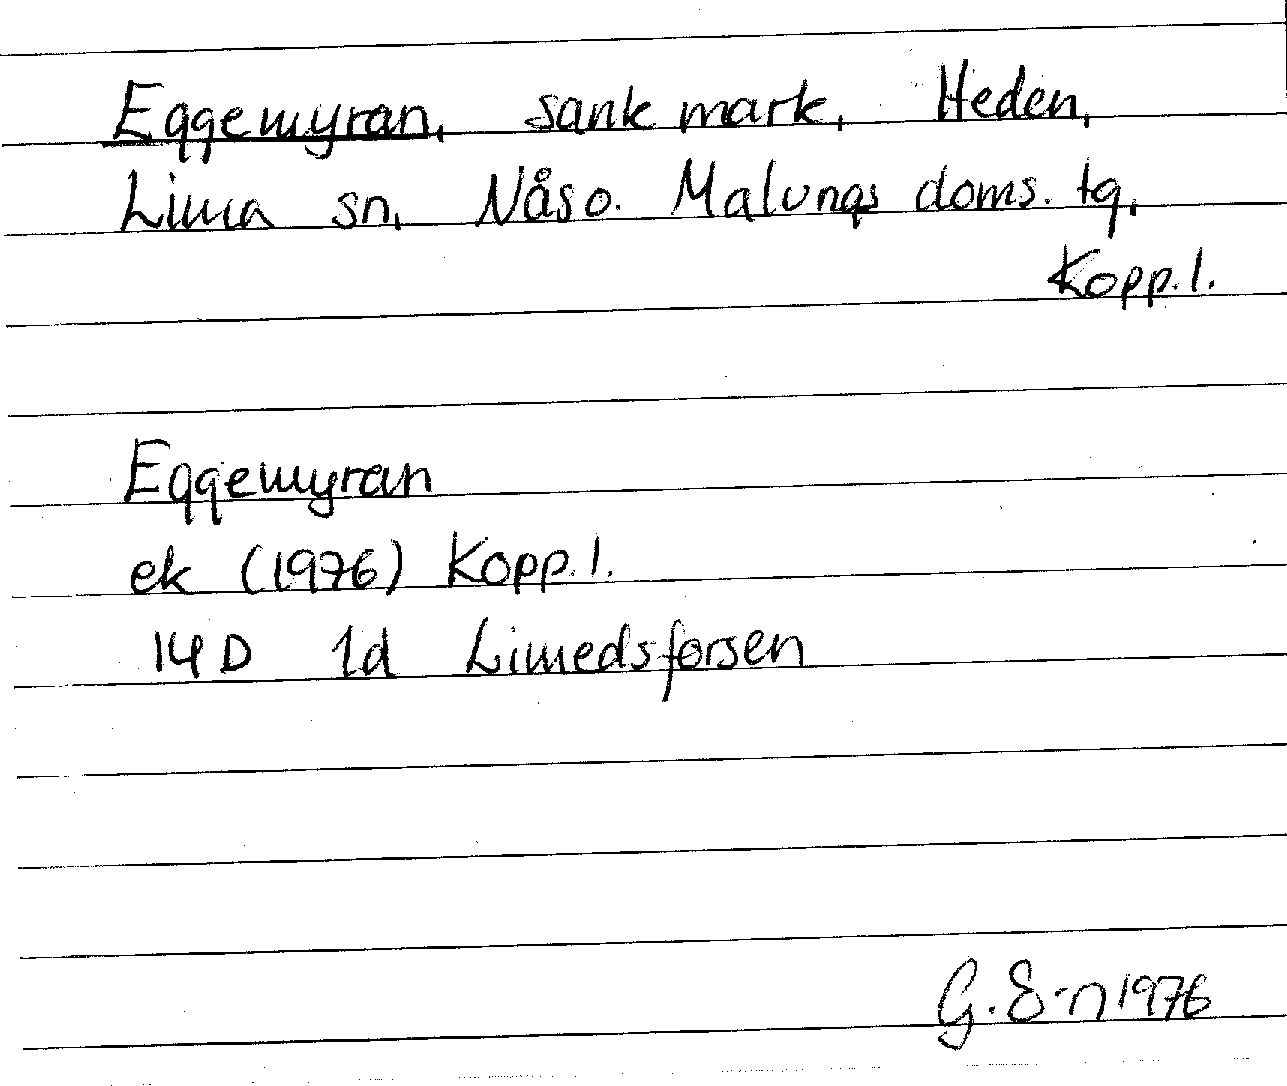 Eggemyran, sank mark, Heden,
Lima sn, Nås o. Malungs doms. tg,
Kopp. l.
Eggemyran
ek (1976) Kopp. l.
14 D 1d Limedsforsen
G. S-n 1976